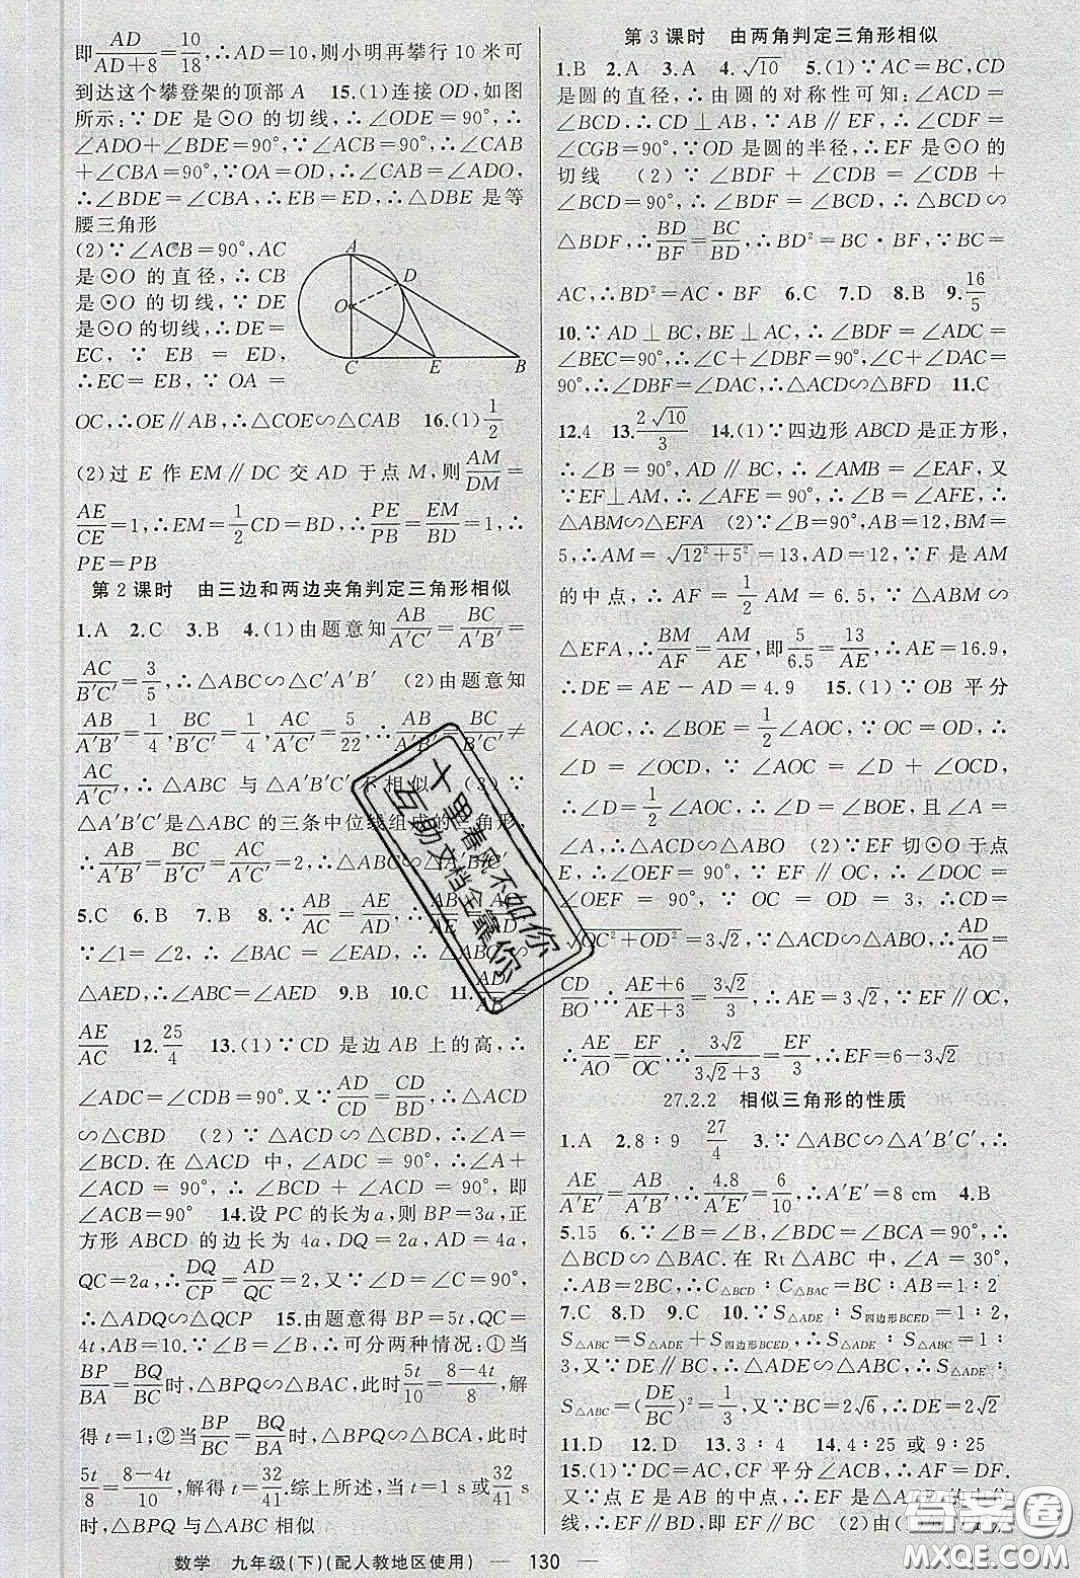 即AD/(AD+8)=10/18,∴AD=10,则小明再攀行10米可
到达这个攀登架的顶部A  15.(1)连接OD,如图
所示:∵DE是⊙O的切线,∴∠ODE=90°,∴
∠ADO+∠BDE=90°,∵∠ACB=90°,∴∠CAB
+∠CBA=90°,∵OA=OD,∴∠CAB=∠ADO,
∴∠BDE=∠CBA,∴EB=ED,∴△DBE是等
腰三角形
(2)∵∠ACB=90°,AC
是⊙O的直径,∴CB
是⊙O的切线,∵DE
是⊙O的切线,∴DE=
EC,∵EB=ED,
∴EC=EB,∵OA=
A
D
O
C E B
OC,∴OE∥AB,∴△COE∽△CAB  16.(1)1/2
(2)过E作EM∥DC交AD于点M,则AM/DM=
AE/CE=1,∴EM=1/2CD=BD,∴PE/PB=EM/BD=1,∴
PE=PB
第2课时 由三边和两边夹角判定三角形相似
1.A  2.C  3.B  4.(1)由题意知AB/A′C′=BC/A′B′=
AC/B′C′=3/5,∴△ABC∽△C′A′B′  (2)由题意知
AB/A′B′=1/4,BC/B′C′=1/4,AC/A′C′=5/22,∴AB/A′B′=BC/B′C′≠
AC/A′C′,∴△ABC与△A′B′C′不相似  (3)∵
△A′B′C′是△ABC的三条中位线组成的三角形,
∴AB/A′B′=BC/B′C′=AC/A′C′=2,∴△ABC∽△A′B′C′
5.C  6.B  7.B  8.∵AB/AC=AE/AD,∴AB/AE=
∵∠1=∠2,∴∠BAC=∠EAD,∴△ABC∽
△AED,∴∠ABC=∠AED  9.B  10.C  11.AD/AB=
AE/AC  12.25/4  13.(1)∵CD是边AB上的高,∴
∠ADC=∠CDB=90°.又∵AD/CD=CD/BD,∴△ACD
∽△CBD  (2)∵△ACD∽△CBD,∴∠A=
∠BCD.在△ACD中,∠ADC=90°,∴∠A+
∠ACD=90°,∴∠BCD+∠ACD=90°,即
∠ACB=90°  14.设PC的长为a,则BP=3a,正
方形ABCD的边长为4a,DQ=2a,AD=4a,
QC=2a,∴DQ/CP=AD/QC=2.又∵∠D=∠C=90°,
∴△ADQ∽△QCP  15.由题意得BP=5t,QC=
4t,AB=10.∵∠B=∠B,∴可分两种情况:①当
BP/BA=BQ/BC时,△BPQ∽△BAC,此时5t/10=(8-4t)/8,解
得t=1;②当BP/BC=BQ/BA时,△BPQ∽△BCA,此时
5t/8=(8-4t)/10,解得t=32/41.综上所述,当t=1 s或32/41 s
时,△BPQ与△ABC相似
第3课时 由两角判定三角形相似
1.B  2.A  3.A  4.√10  5.(1)∵AC=BC,CD
是圆的直径,∴由圆的对称性可知:∠ACD=
∠BCD,∴CD⊥AB,∵AB∥EF,∴∠CDF=
∠CGB=90°,∵OD是圆的半径,∴EF是⊙O的
切线  (2)∵∠BDF+∠CDB=∠CDB+
∠BCD=90°,∴∠BDF=∠BCD,∴△BCD∽
△BDF,∴BD/BF=BC/BD,∴BD²=BC·BF,∵BC=
AC,∴BD²=AC·BF  6.C  7.D  8.B  9.16/5
10.∵AD⊥BC,BE⊥AC,∴∠BDF=∠ADC=
∠BEC=90°,∴∠C+∠DBF=90°,∠C+∠DAC=
90°,∴∠DBF=∠DAC,∴△ACD∽△BFD  11.C
12.4  13.2√10/3  14.(1)∵四边形ABCD是正方形,
∴∠B=90°,AD∥BC,∴∠AMB=∠EAF,又
∵EF⊥AM,∴∠AFE=90°,∴∠B=∠AFE,∴
△ABM∽△EFA  (2)∵∠B=90°,AB=12,BM=
5,∴AM=√(12²+5²)=13,AD=12,∵F是AM
的中点,∴AF=1/2AM=6.5,∵△ABM∽
△EFA,∴BM/AF=AM/AE,即5/6.5=13/AE,∴AE=16.9,
∴DE=AE-AD=4.9  15.(1)∵OB平分
∠AOC,∴∠BOE=1/2∠AOC,∵OC=OD,∴
∠D=∠OCD,∵∠AOC=∠D+∠OCD,
∴∠D=1/2∠AOC,∴∠D=∠BOE,且∠A=
∠A,∴△ACD∽△ABO  (2)∵EF切⊙O于点
E,∴∠OEF=90°,∵EF∥OC,∴∠DOC=
∠OEF=90°,∵OC=OD=3,∴CD=
√(OC²+OD²)=3√2,∵△ACD∽△ABO,∴AD/AO=
CD/BO,∴(AE+6)/(AE+3)=3√2/3,∴AE=3√2,∵EF∥OC,
∴AE/AO=EF/OC,∴3√2/(3√2+3)=EF/3,∴EF=6-3√2
27.2.2 相似三角形的性质
1.A  2.8∶9  27/4  3.∵△ABC∽△A′B′C′,∴
AE/A′E′=AB/A′B′,∴4.8/A′E′=6/10,∴A′E′=8 cm  4.B
5.15  6.∵∠B=∠B,∠BDC=∠BCA=90°,∴
△BCD∽△BAC.在Rt△ABC中,∠A=30°,
∴AB=2BC,∴C△BCD∶C△BAC=BC∶AB=1∶2
7.C  8.D  9.C  10.∵S△ADE∶S四边形BCED=1∶2,
S△ABC=S△ADE+S四边形BCED,∴S△ADE∶S△ABC=1∶
3,又∵DE∥BC,∴△ADE∽△ABC,∴S△ADE/
S△ABC=(DE/BC)²=1/3,又∵BC=2√6,∴DE=2√2
11.D  12.D  13.3∶4  14.4∶25或9∶25
15.(1)∵DC=AC,CF平分∠ACB,∴AF=DF.
又∵点E是AB的中点,∴EF是△ABD的中位
线,∴EF∥BD  (2)由(1)
数学 九年级(下)(配人教地区使用) — 130 —
十里春风不如你
互助文档全靠你
答案圈
MXQE.COM